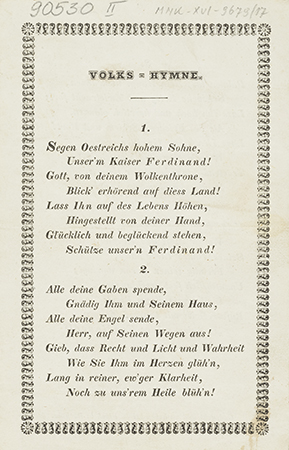 90530 II
MNK-XVI-3673/87
VOLKS = HYMNE.
1.
Segen Oestreichs hohem Sohne,
Unser'm Kaiser Ferdinand!
Gott, von deinem Wolkenthrone,
Blick' erhörend auf diess Land!
Lass Ihn auf des Lebens Höhen,
Hingestellt von deiner Hand,
Glücklich und beglückend stehen,
Schütze unser'n Ferdinand!
2.
Alle deine Gaben spende,
Gnädig Ihm und Seinem Haus,
Alle deine Engel sende,
Herr, auf Seinen Wegen aus!
Gieb, dass Recht und Licht und Wahrheit
Wie Sie Ihm im Herzen glüh'n,
Lang in reiner, ew'ger Klarheit,
Noch zu uns'rem Heile blüh'n!